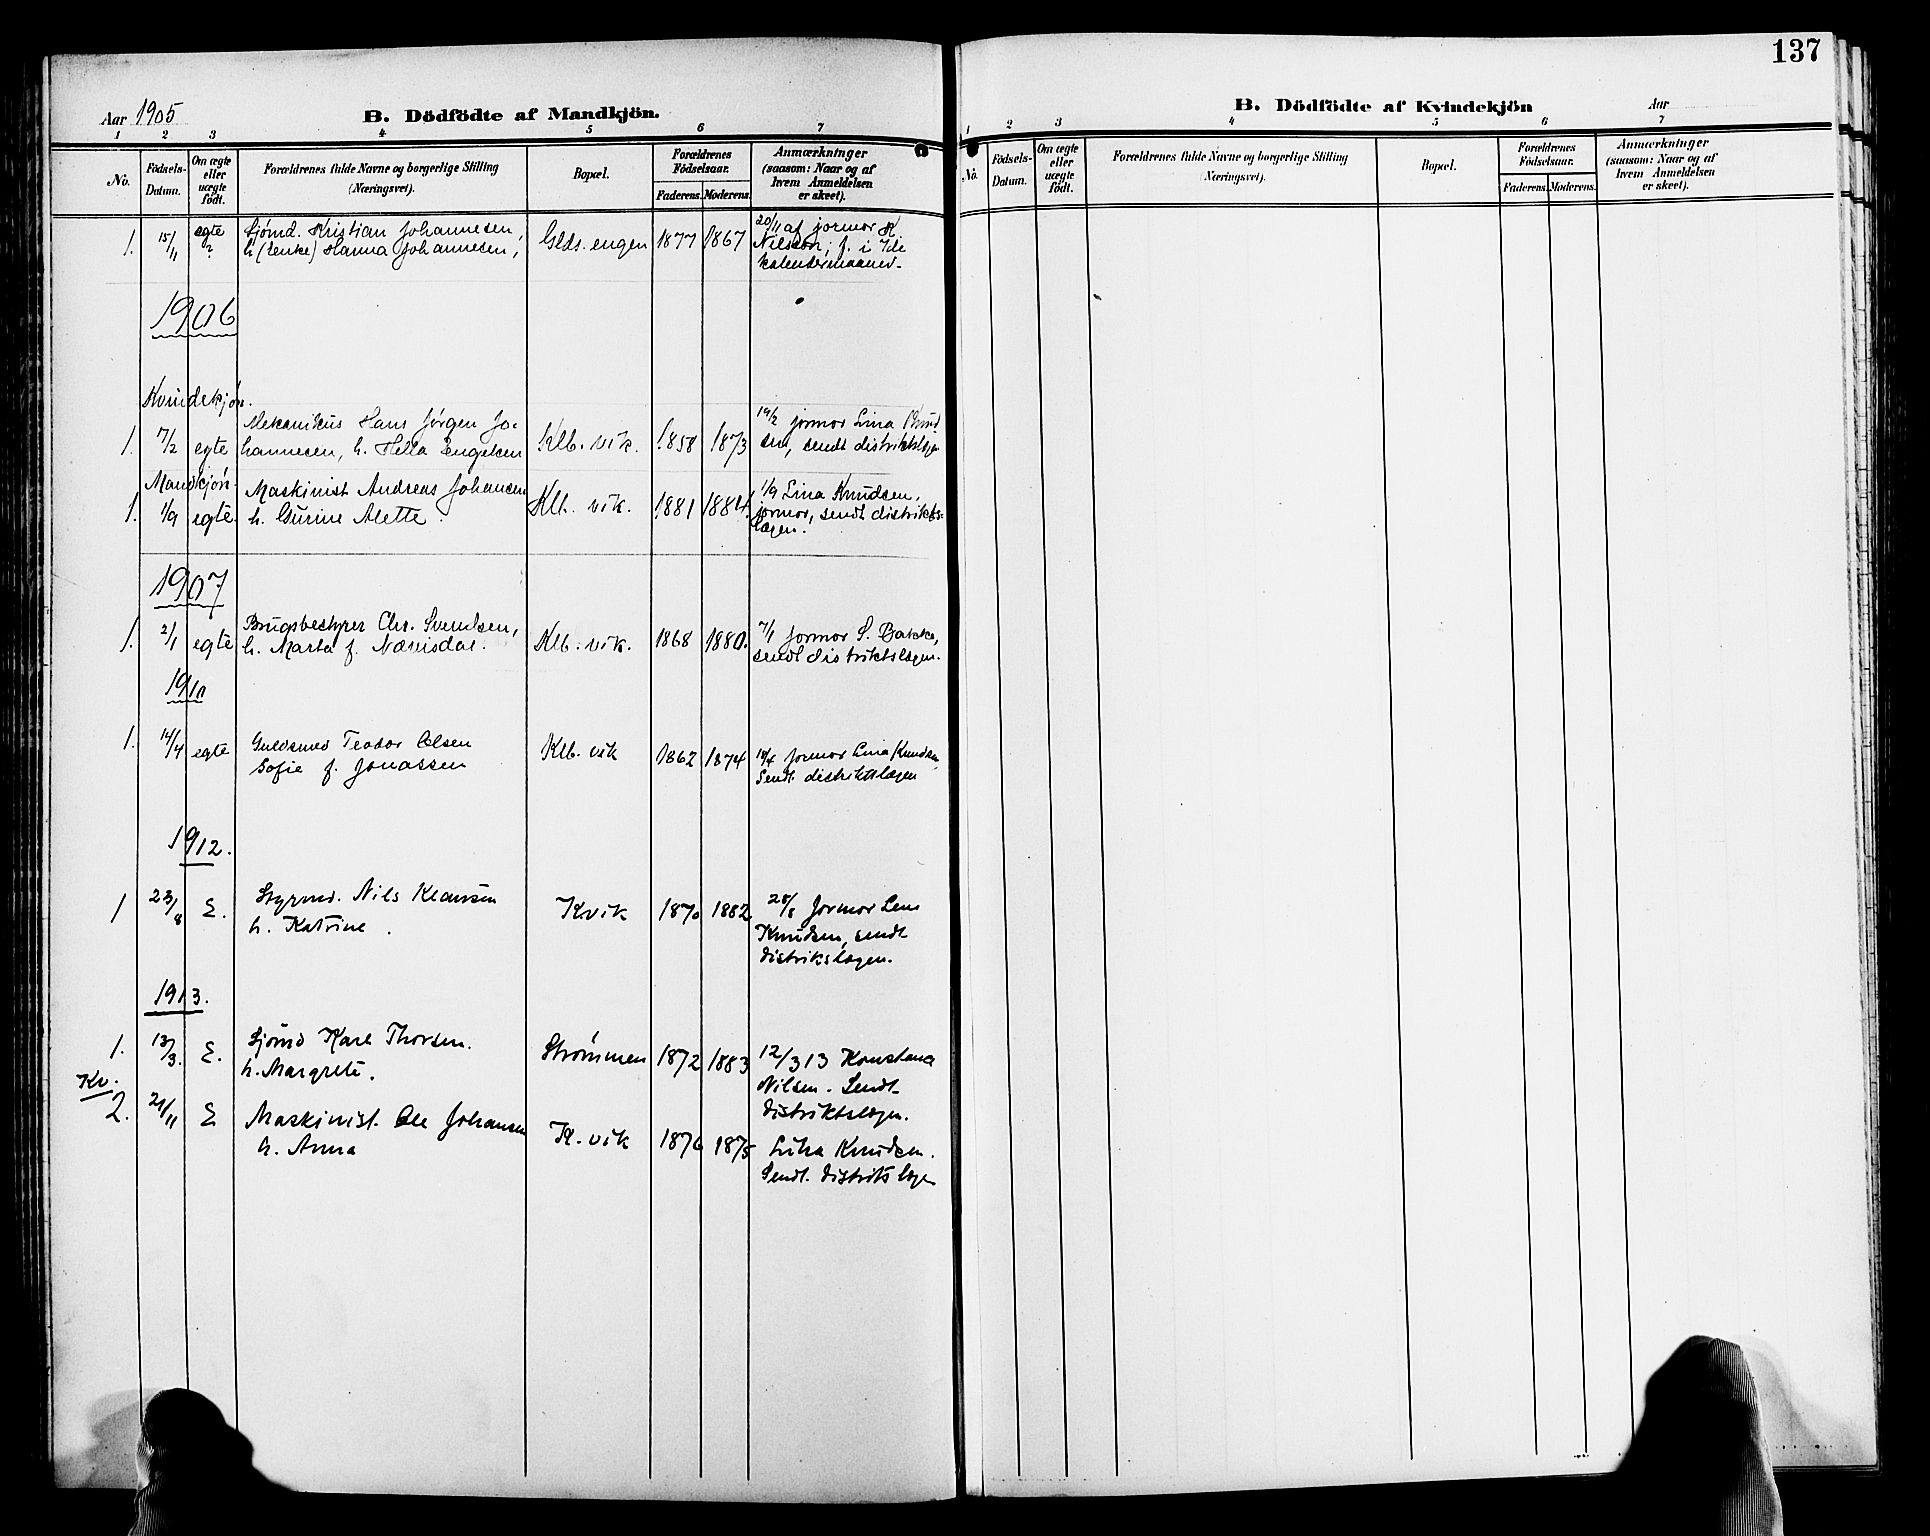 137
Aar 1905
B. Dödfödte af Mandkjön.
1 2 3 4 5 6 7
No.
Födsels-Datum.
Om ægte eller uægte födt.
Forældrenes fulde Navne og borgerlige Stilling (Næringsvei).
Bopæl.
Forældrenes Födselsaar.
Faderens. Moderens.
Anmærkninger (saasom: Naar og af hvem Anmeldelsen er skeet).
1. 15/11 egte ? Sjømd. Kristian Johannesen, Glds. engen 1877 1867 20/11 af jormor K
h. (enke) Hanna Johannesen, Nilsson; f. i 7de
kalendermaaned.
1906
Kvindekjøn.
1. 7/2 egte Mekanikus Hans Jørgen Jo- Klb. vik. 1858 1873 19/2 jormor Lina Knud
hannesen, h. Hella Engelsen sen, sendt distriktslægen
Mandkjøn.
1. 1/9 egte. Maskinist Andreas Johansen Klb. vik. 1881 1884. 1/9 Lina Knudsen,
h. Gurine Alette. jormor, sendt distrikts-
lægen.
1907
1. 2/1 egte Brugsbestyrer Chr. Svendsen, Klb. vik. 1868 1880. 7/1 jormor S. Bakke,
h. Marta f. Nævisdal. sendt distriktslægen.
1910
1. 14/4 egte Guldsmed Teodor Olsen Klb. vik 1862 1874 18/4 jormor Lina Knudsen,
Sofie f. Jonassen Sendt distriktslægen
1912.
1 23/8 E. Styrmd. Nils Klausen Kvik 1870 1882 28/8 Jormor Lina
h. Katrine. Knudsen, sendt
distrikslægen.
1913.
1. 13/3. E. Sjømd Karl Thorsen. Strømmen 1872 1883 12/3 13 Konstanse
h. Margrete. Nilsen. Sendt
distriktslægen.
Kv.
2. 21/11 E Maskinist. Ole Johansen K. vik 1876 1875 Lina Knudsen.
h. Anna Sendt. distrikts lægen
B. Dödfödte af Kvindekjön
Aar
1 2 3 4 5 6 7
No.
Födsels-Datum.
Om ægte eller uægte födt.
Forældrenes fulde Navne og borgerlige Stilling (Næringsvei).
Bopæl.
Forældrenes Födselsaar.
Faderens. Moderens.
Anmærkninger (saasom: Naar og af hvem Anmeldelsen er skeet).